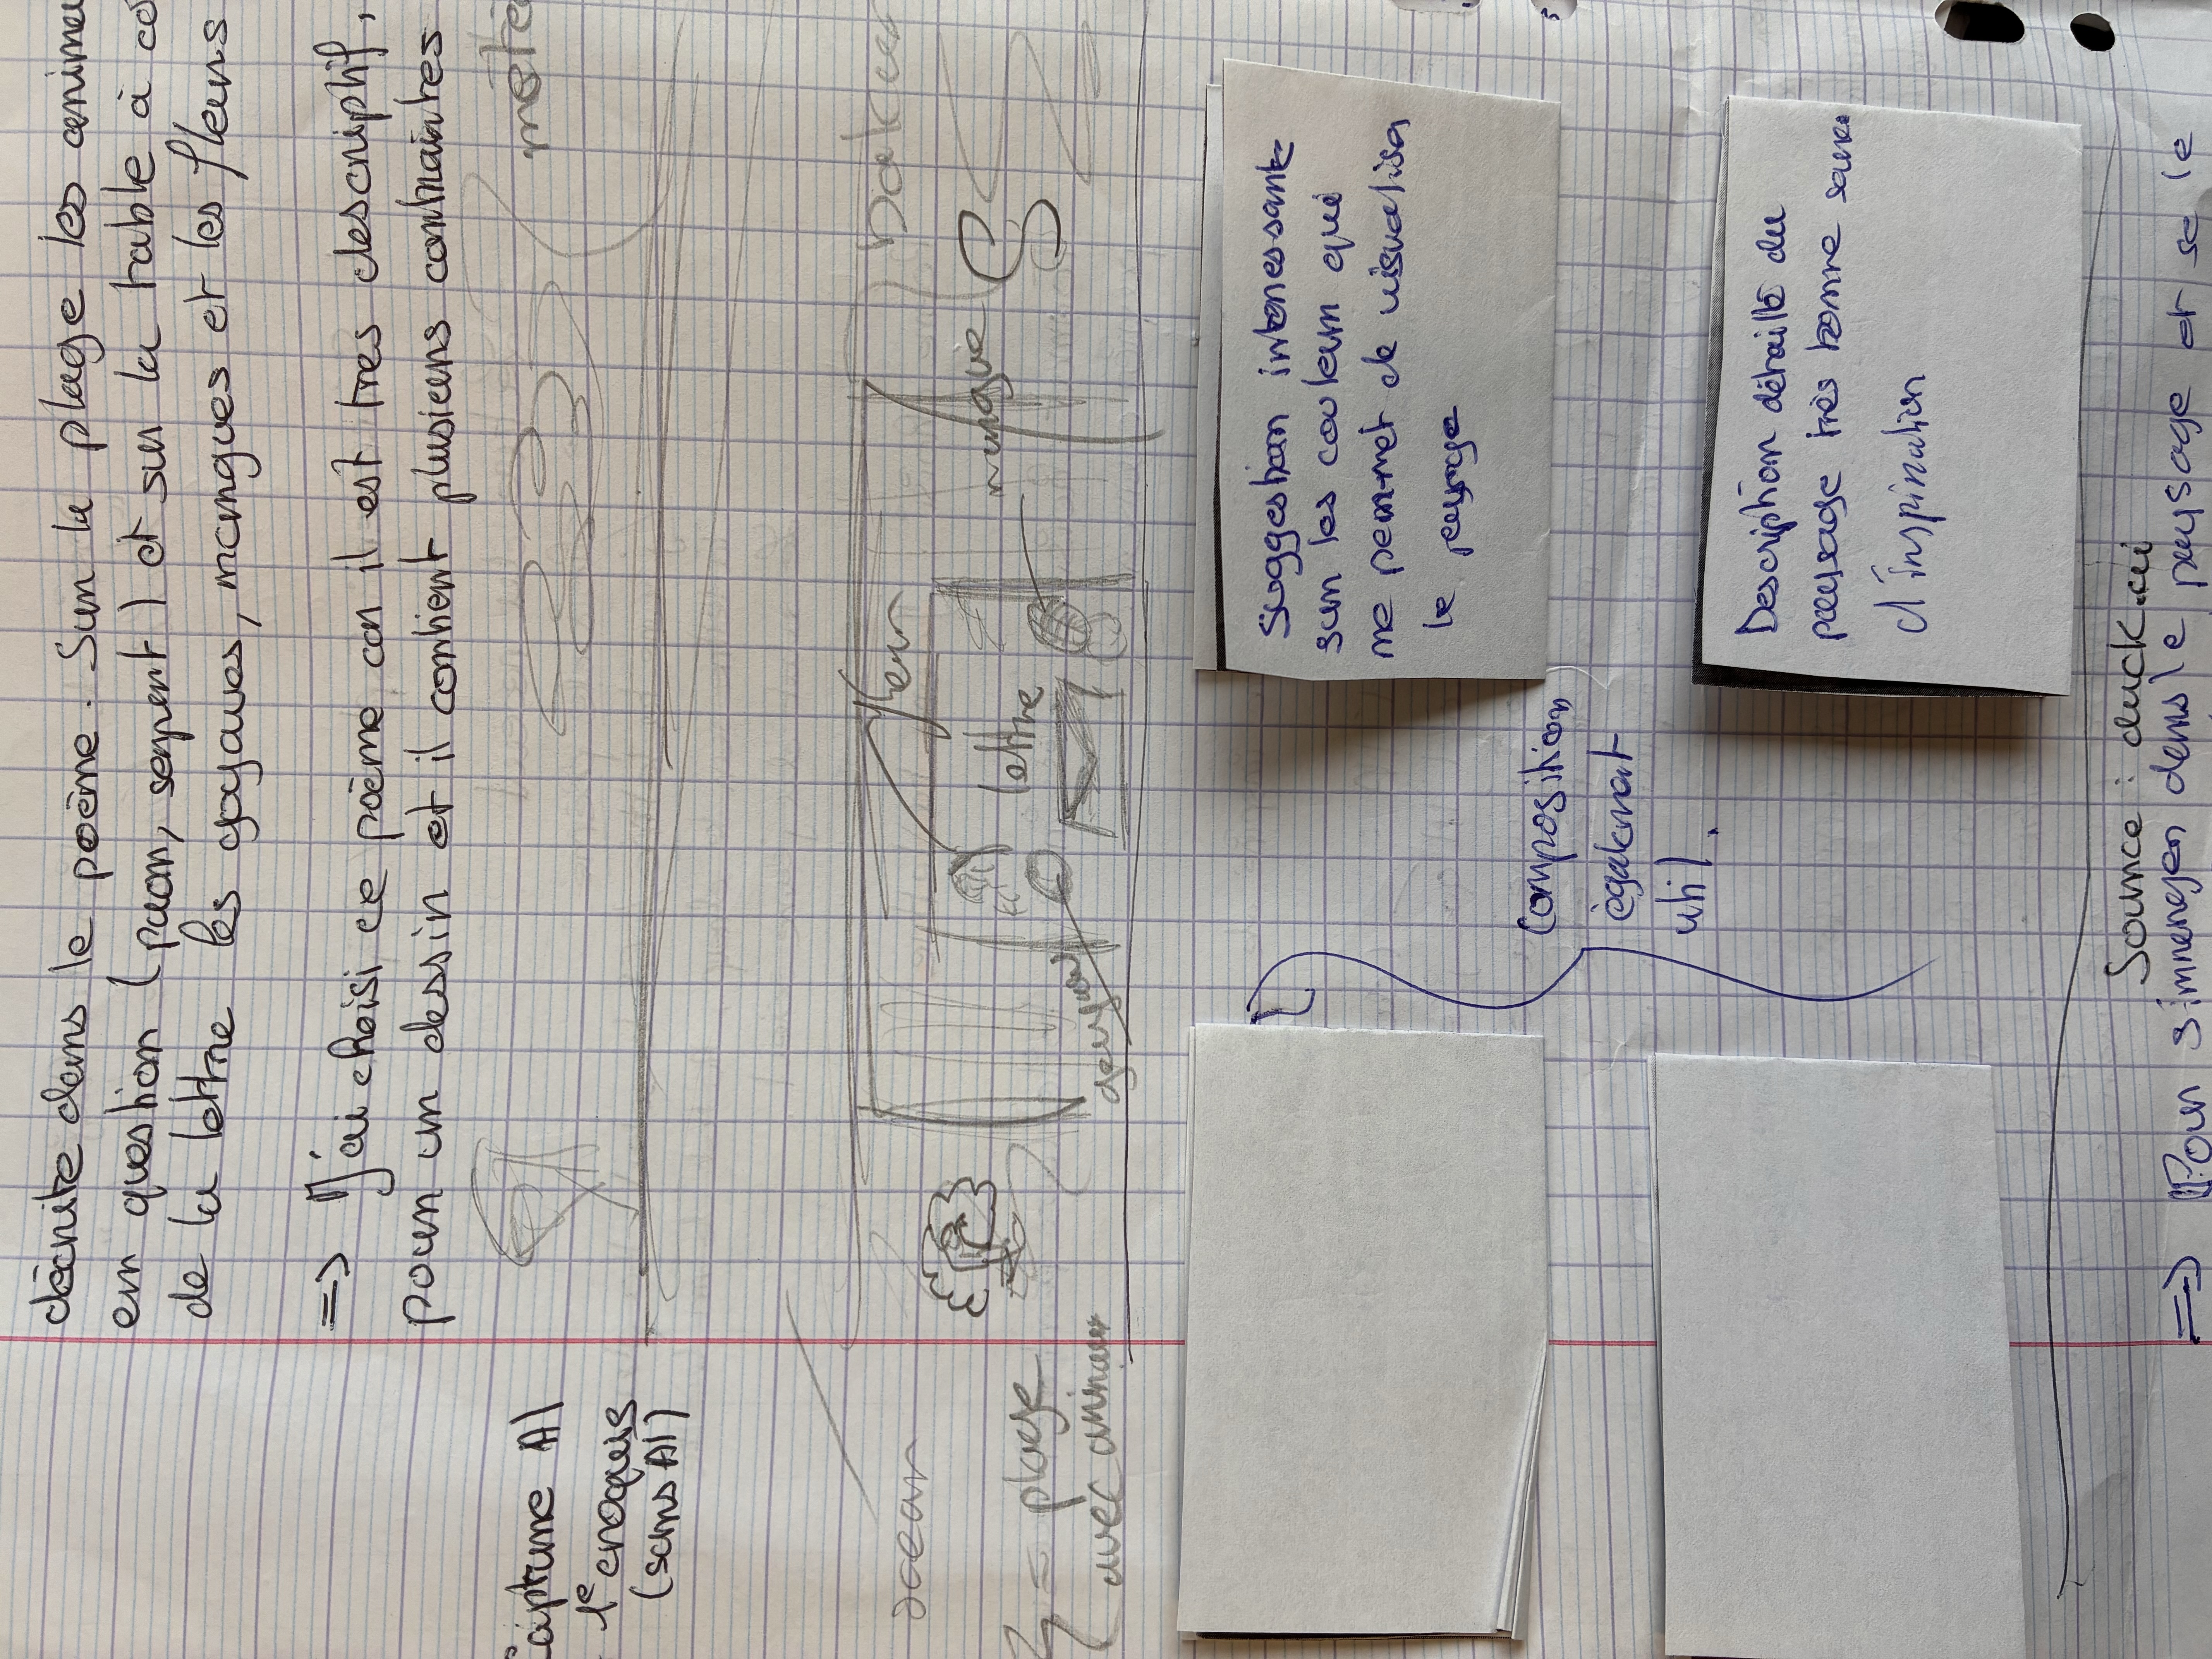 décrite dans le poème. Sur la plage les anima
en question (paon, serpent) et sur la table à co
de la lettre les goyaves, mangues et les fleurs
=> J'ai choisi ce poème car il est très descriptif,
pour un dessin et il contient plusieurs contraires
AI
1e croquis
(sans AI)
océan
plage
avec animaux
fleur
lettre
mangue
goyave
Suggestion interessante
sur les couleurs qui
me permet de visualisa
le paysage
Composition
également
util.
Description détaillé du
paysage très bonne source
d'inspiration
Source : duck.ai
=> Pour s'immerger dans le paysage et se le